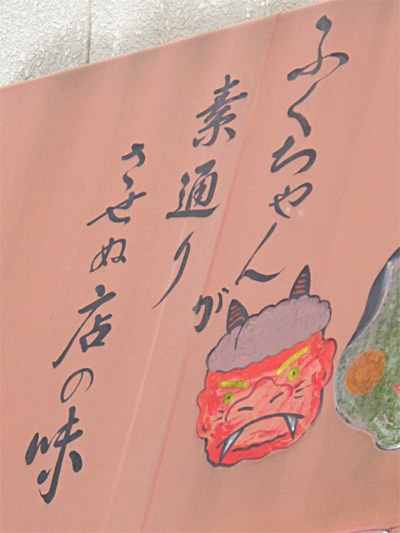 ふくちゃんが
素通り
させぬ店の味